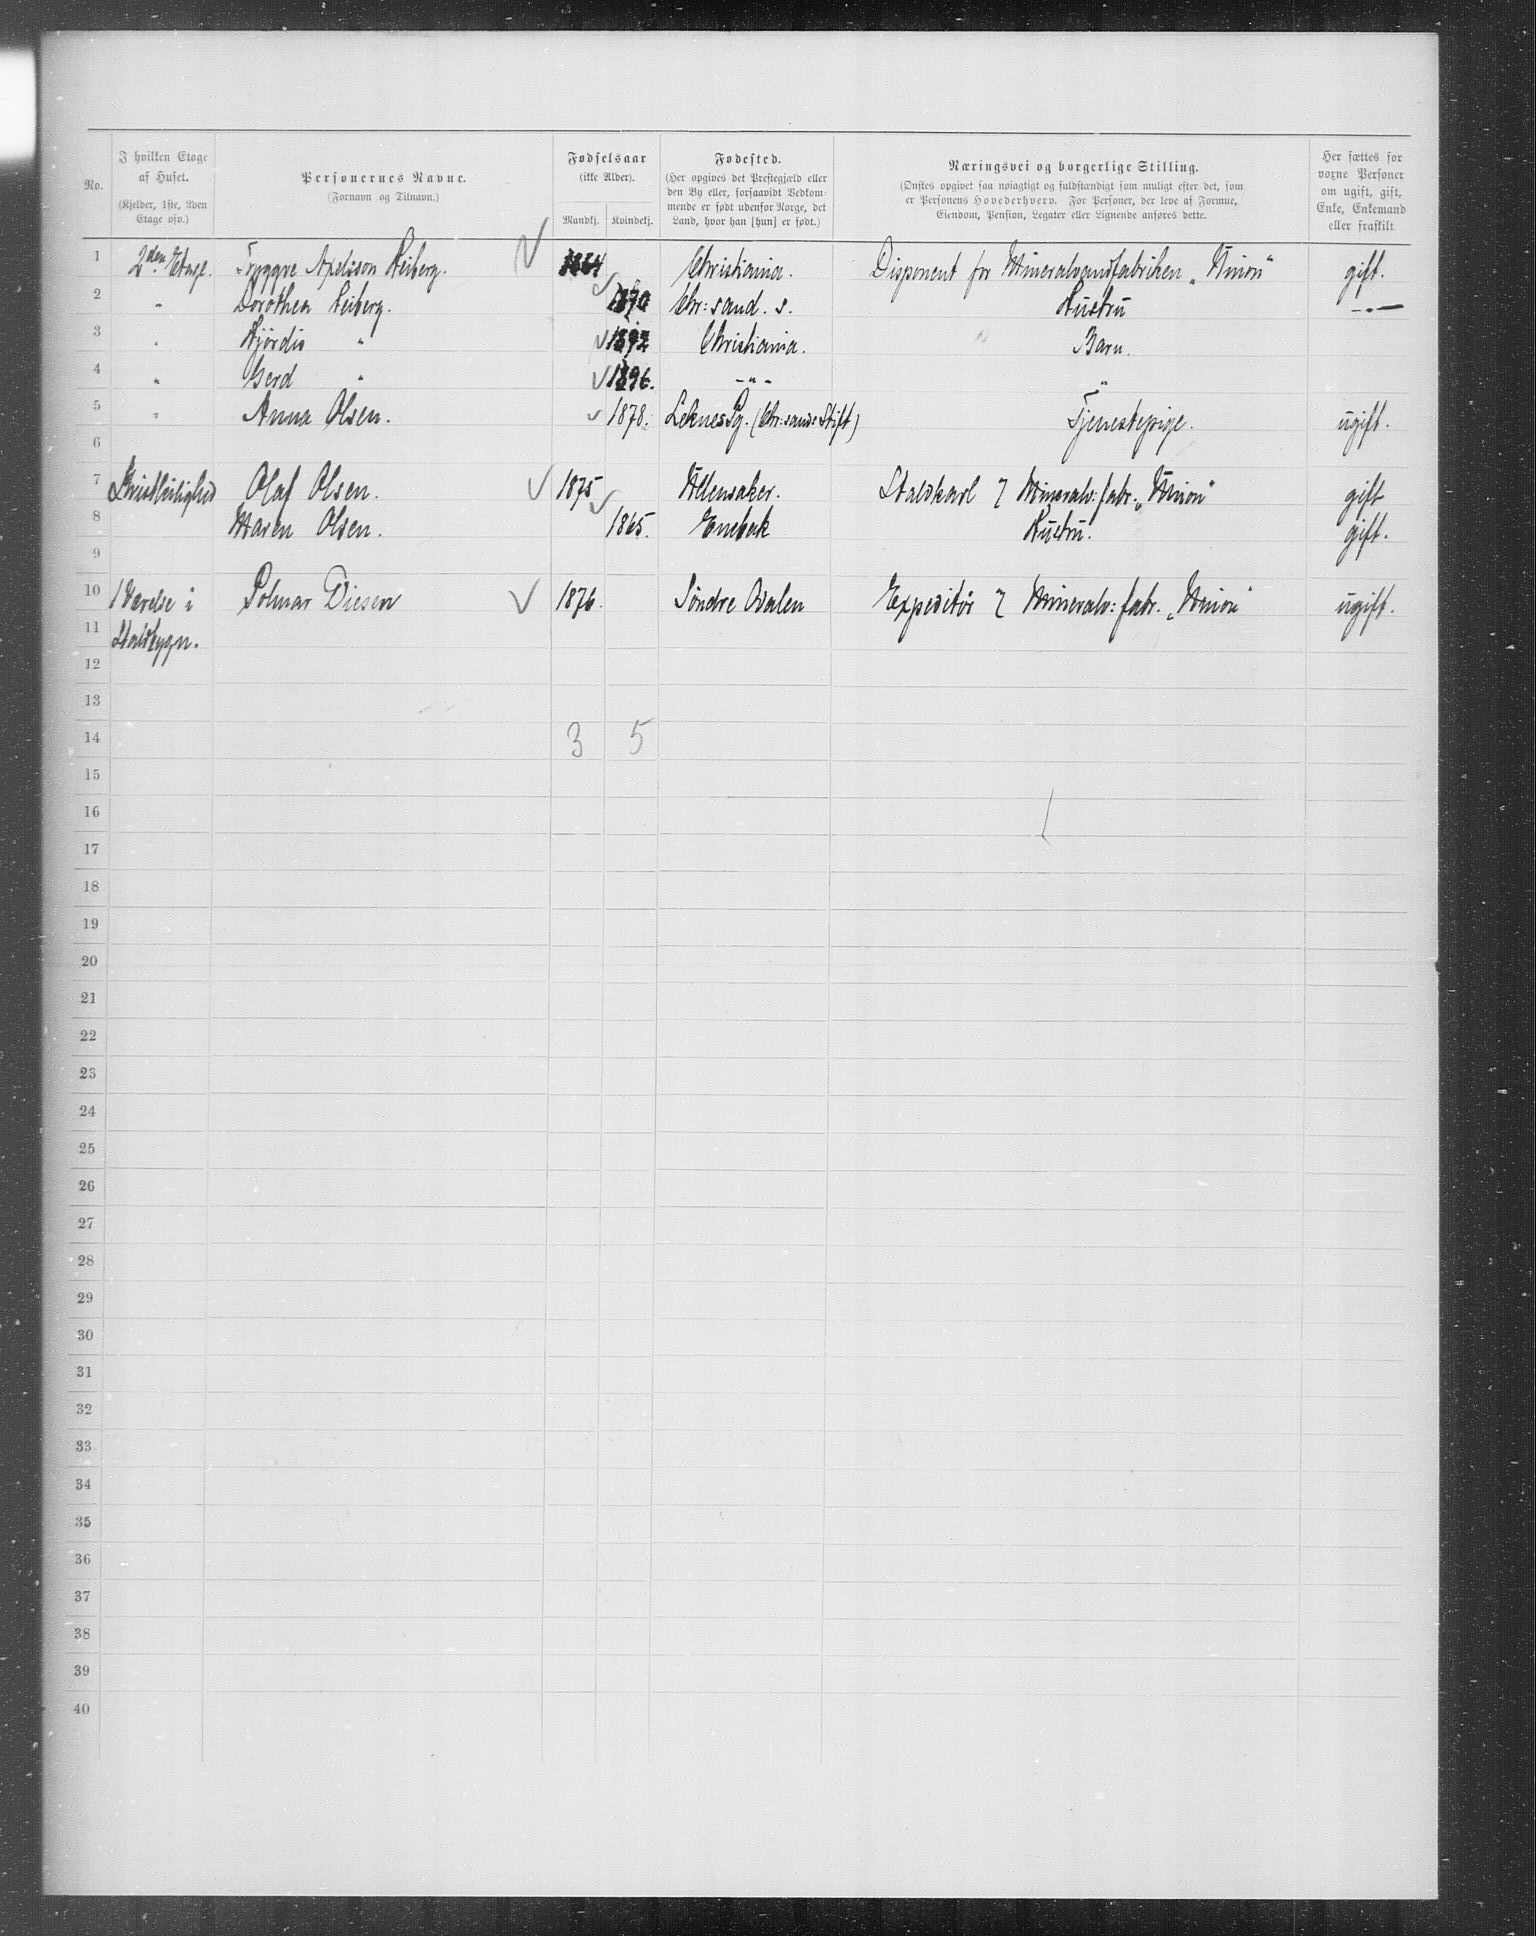 No. | I hvilken Etage af Huset. (Kjelder, 1ste, 2den Etage osv.) | Personernes Navne. (Fornavn og Tilnavn.) | Fødselsaar (ikke Alder). Mandkj. | Kvindekj. | Fødested. (Her opgives det Prestegjæld eller den By eller, forsaavidt Vedkommende er født udenfor Norge, det Land, hvor han [hun] er født.) | Næringsvei og borgerlige Stilling. (Ønskes opgivet saa nøiagtigt og fuldstændigt som muligt efter det, som er Personens Hovederhverv. For Personer, der leve af Formue, Eiendom, Pension, Legater eller Lignende anføres dette. | Her sættes for voxne Personer om ugift, gift, Enke, Enkemand eller fraskilt
1 2den Etage. Tryggve Axelsson Heiberg. 1864 Christiania. Disponent for Mineralvandfabriken „Union" gift.
2 " Dorothea Heiberg. 1870 Chr:sand. S. Hustru -"-
3 " Hjördis " 1892 Christiania. Barn.
4 " Gerd " 1896. -"- "
5 " Anna Olsen. 1878. Leknes Pg. (Chr:sands Stift) Tjenestepige. ugift.
6
7 Olaf Olsen. 1875 Ullensaker. Staldkarl Mineralv: fabr. „Union" gift
8 Maren Olsen. 1865. Enebak Hustru. gift.
9
10 1 Værelse i Polmar Diesen 1876. Söndre Odalen Expeditör Mineralv: fabr. „Union" ugift.
11 Staldbygn.
12
13
14 3 5
15
16
17
18
19
20
21
22
23
24
25
26
27
28
29
30
31
32
33
34
35
36
37
38
39
40